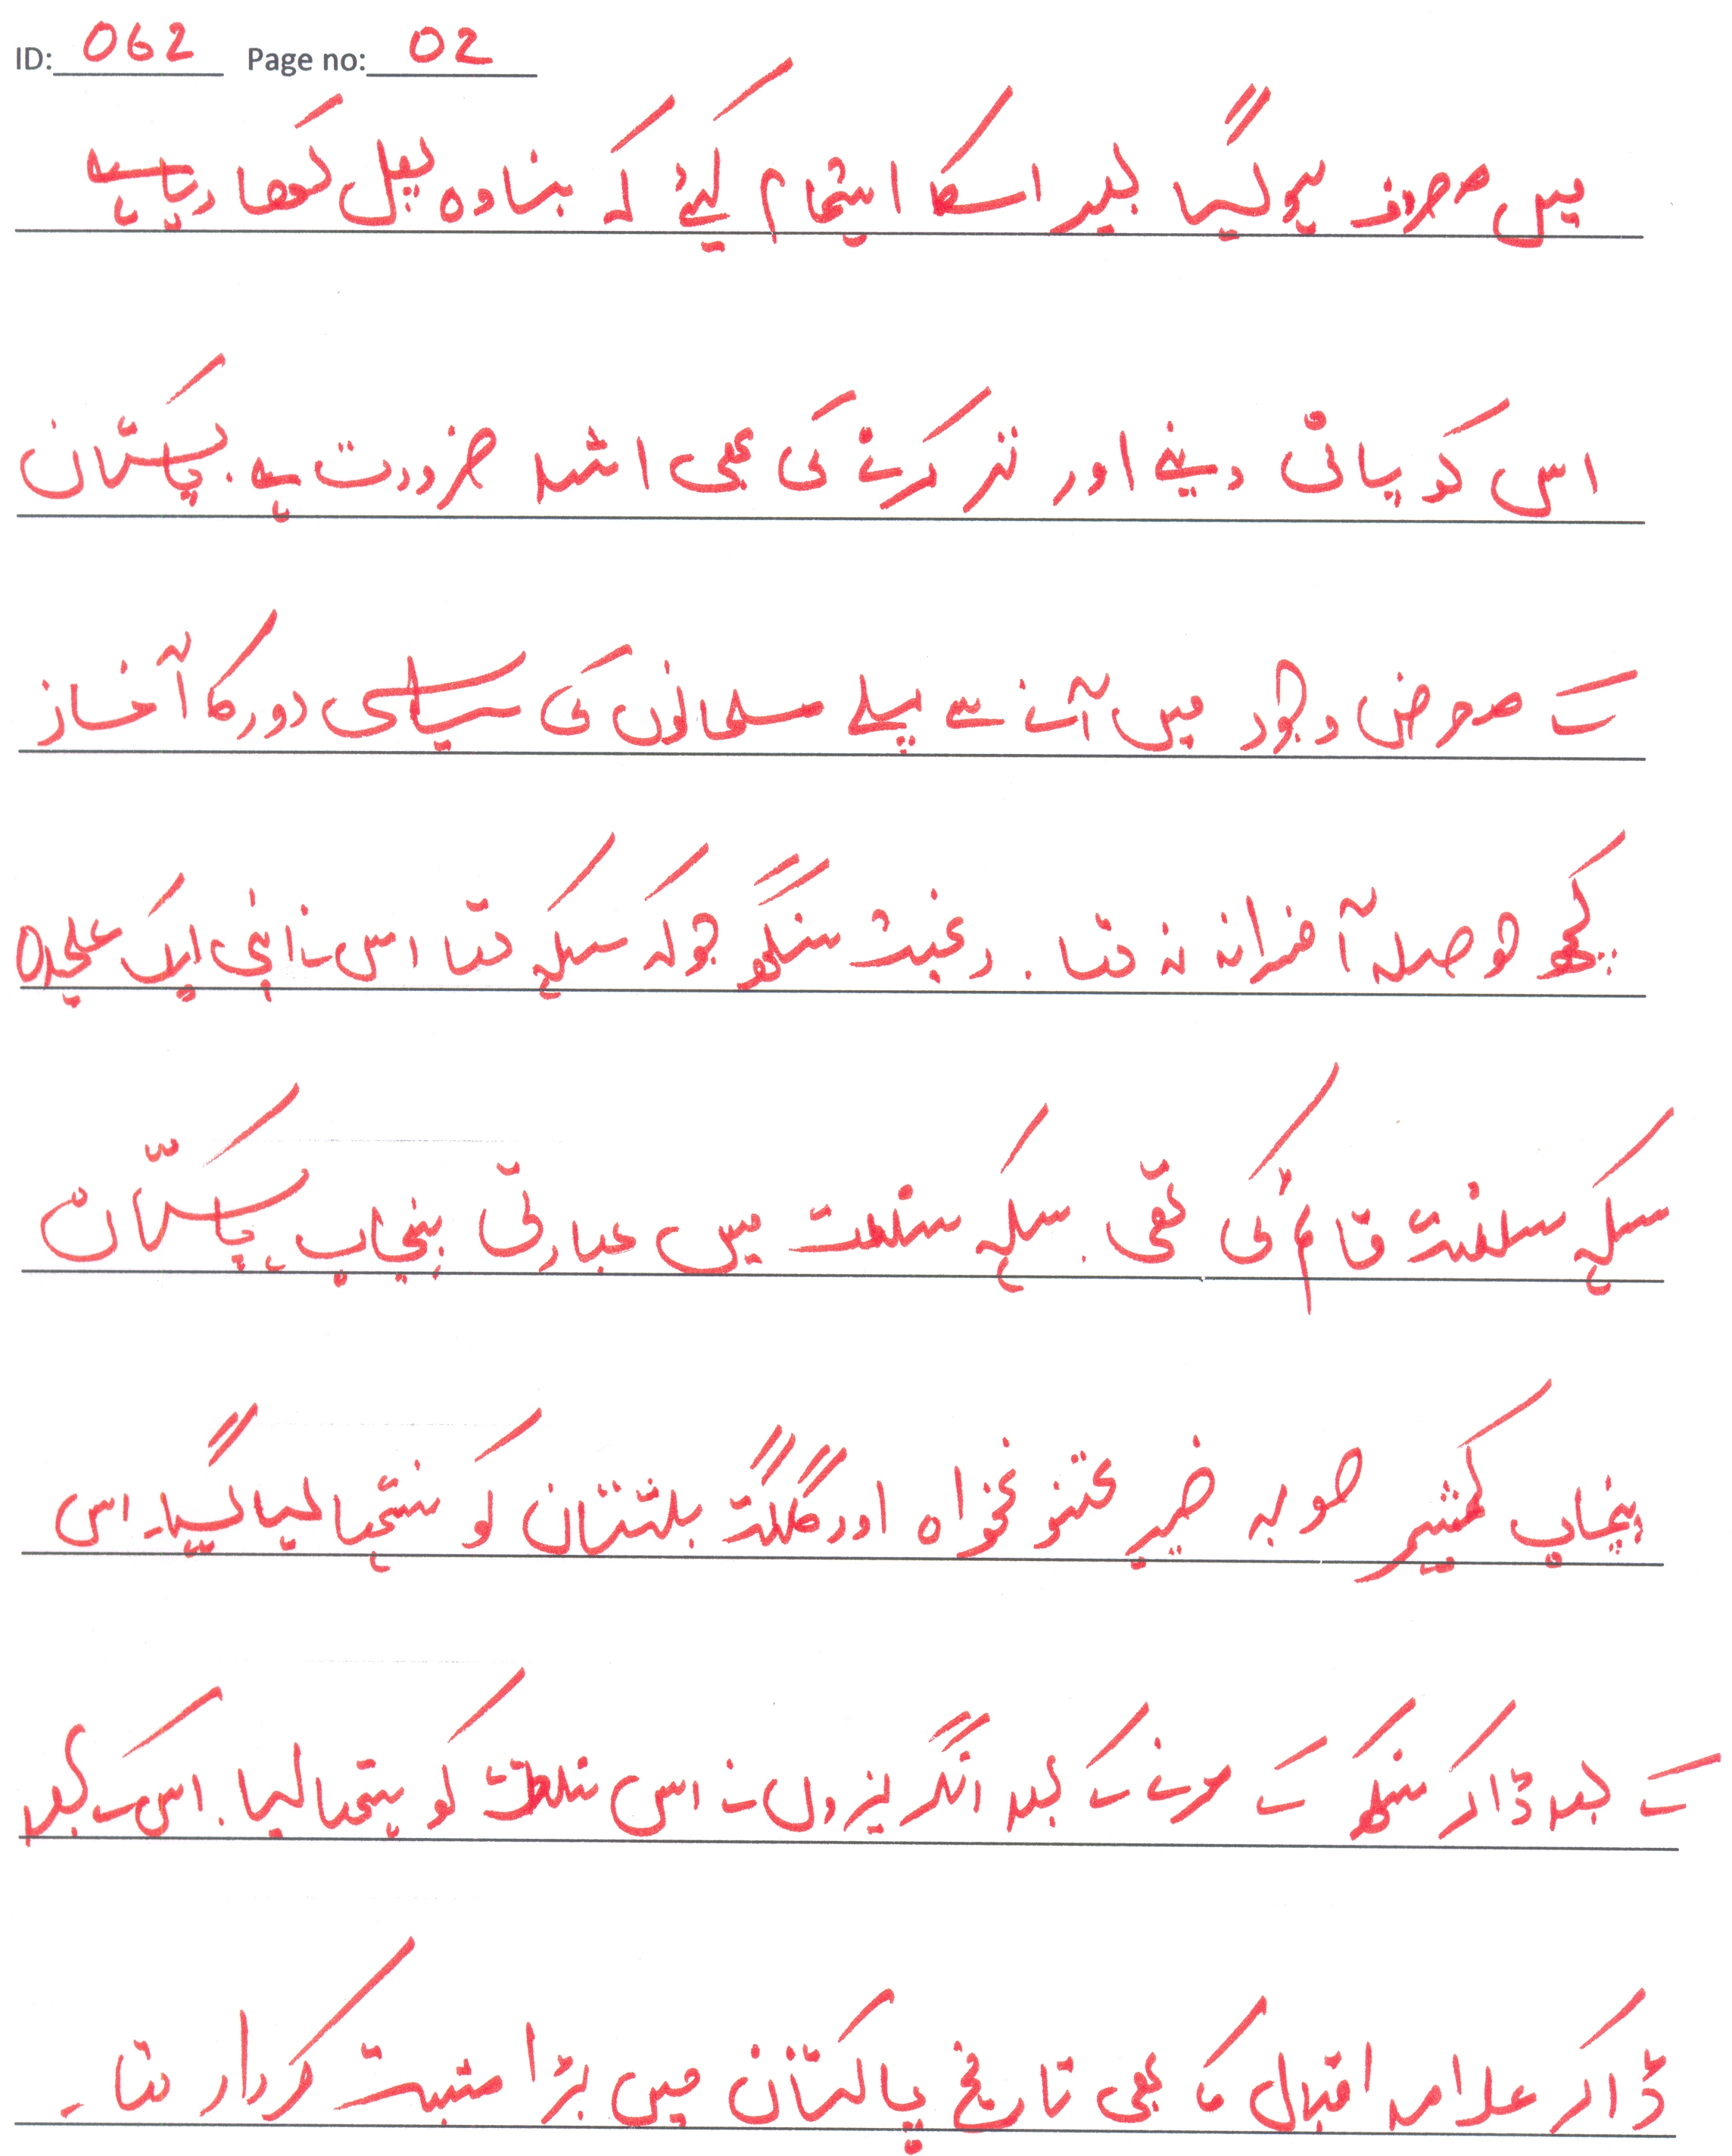 ID: 062 Page no: 02
میں مصروف ہوگیا بغیر اسکا اہتمام کیئے کہ بناوہ پھل کھا رہا ہے
اس کو پانی دینے اور تر کرنے کی بھی اشد ضرورت ہے۔ پاکستان
کے معرض وجود میں آنے سے پہلے مسلمانوں کی سیاسی دور کا آغاز
کچھ حوصلہ آفزانہ نہ تھا۔ رغبت سنگھ جوکہ سکھ تھا اس نے اپنی ایک علیحدہ
سکھ سلطنت قائم کی تھی۔ سکھ سلطنت میں بھارتی پنجاب پاکستان
پنجاب کشمیر صوبہ خیبر پختونخواہ اور گلگت بلتستان کو ہتھیا لیا گیا۔ اس
کے بعد ڈاکر سنگھ کے مرنے کے بعد انگریزوں نے اس سلطنت کو ہتھیا لیا۔ اس کے بعد
ڈاکر علامہ اقبال کا بھی تاریخ پاکستان میں بڑا مثبت کردار تھا۔